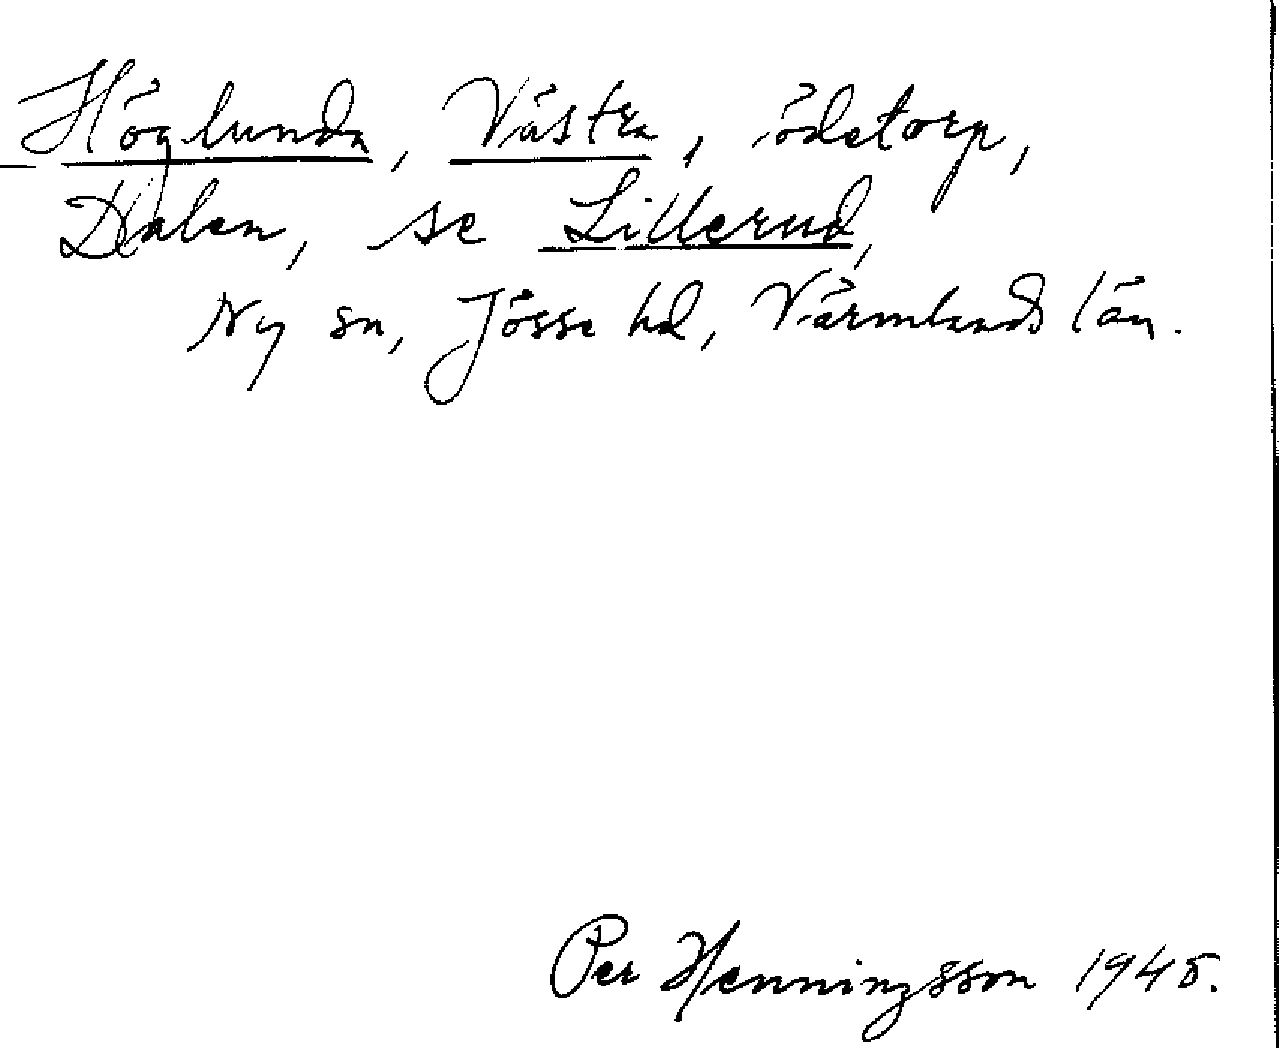 Höglunda, Västra, ödetorp,
Dalen, se Lillerud,
Ny sn, Jösse hd, Värmlands län.
Per Henningsson 1945.